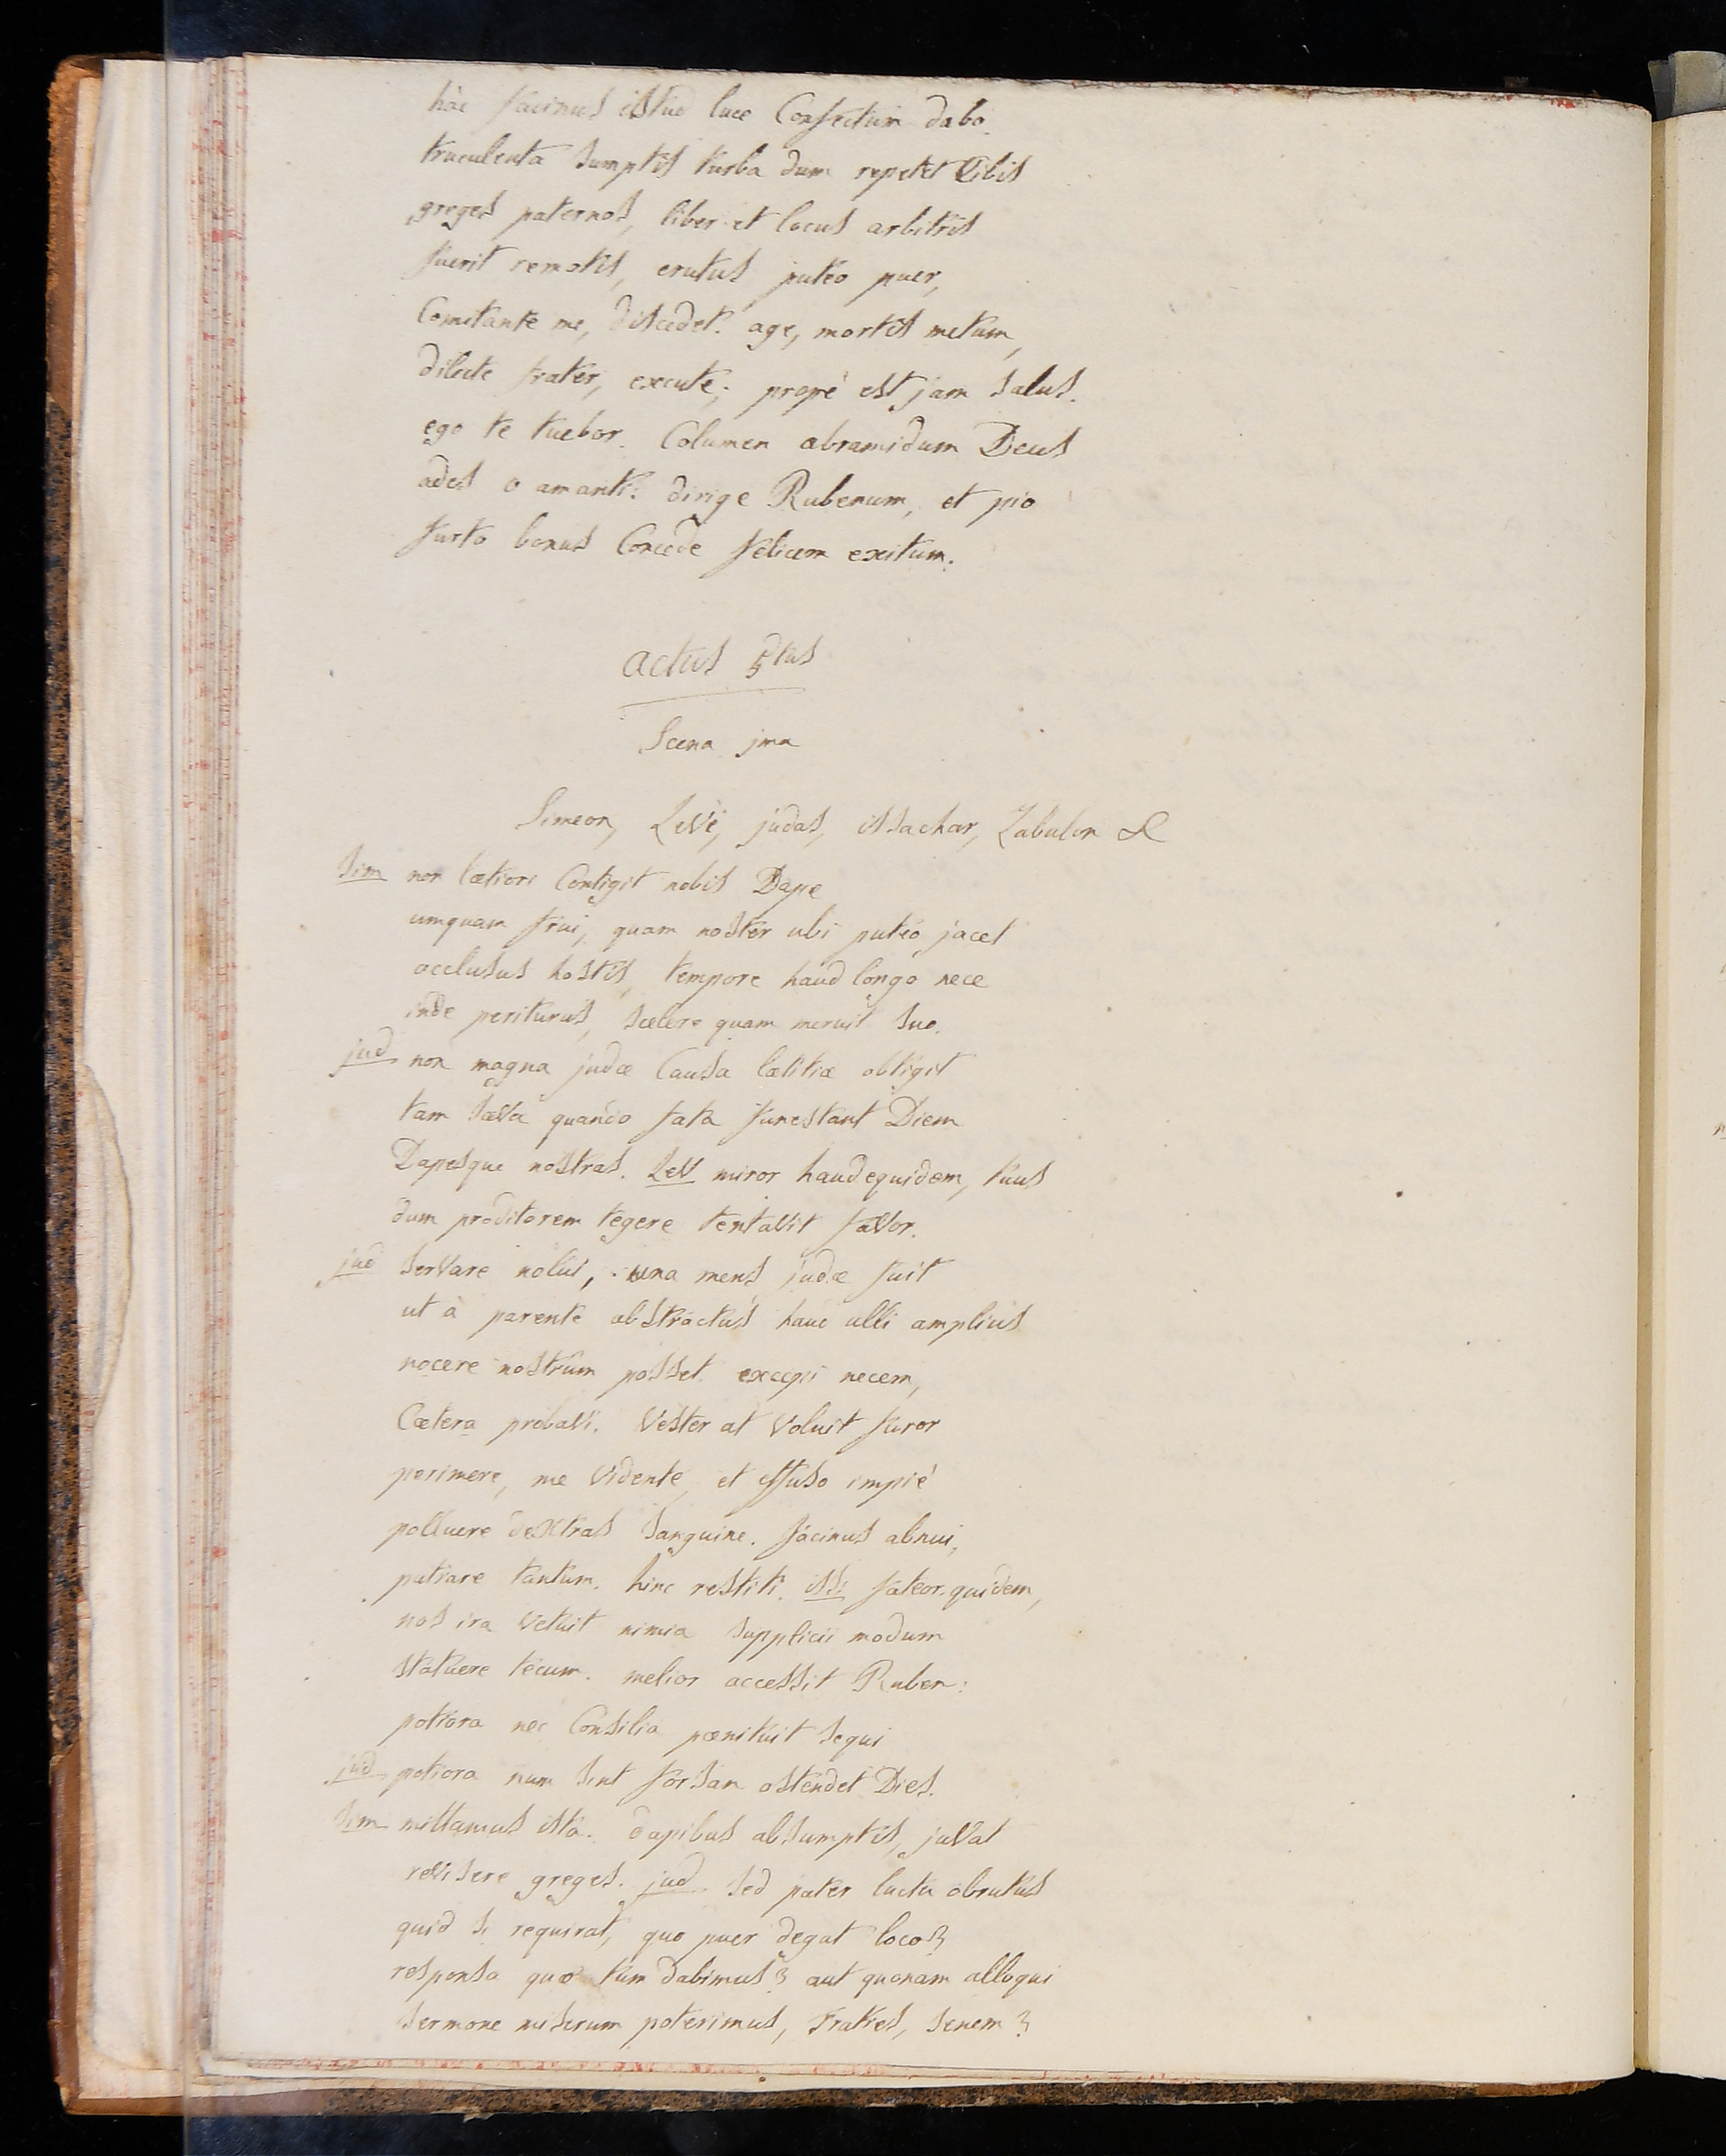 hâc facinus istud luce Confectum dabo.
truculenta sumptis turba dum repetet Cibis
greges paternos, liber et locus arbitris
fuerit remotis, erutus puteo puer,
Comitante me, discedet. age, mortis metum,
dilecte frater, excute; propè est jam salus.
ego te tuebor. Columen abramidum Deus
ades o amanti: dirige Rubenum, et pio
furto bonus Concede felicem exitum.
actus 5tus
Scena jma
Simeon, Levi, judas, issachar, Zabulon &
Sim non lætiori Contigit nobis Dape
umquam frui, quam noster ubi puteo jacet
occlusus hostis, tempore haud longo nece
inde periturus, scelere quam meruit suo.
jud non magna judæ Causa lætitiæ obtigit
tam sæva quando fata funestant Diem
Dapesque nostras. Lev miror haud equidem, tuus
dum proditorem tegere tentavit favor.
jud servare nolui, una mens judæ fuit
ut à parente abstractus haud ulli amplius
nocere nostrûm posset. excepi necem,
Cætera probavi. Vester at Voluit furor
perimere, me Vidente, et effuso impiè
polluere dextras sanguine. facinus abnui,
patrare tantum. hinc restiti. iss fateor quidem,
nos ira vetuit nimia supplicii modum
statuere tecum. melior accessit Ruben:
potiora nec Consilia pænituit sequi
jud potiora num sint forsan ostendet Dies.
Sim mittamus ista. dapibus absumptis, juvat
revisere greges. jud sed pater luctu obrutus
quid si requirat, quo puer degat loco?
responsa quæ tum dabimus? aut quonam alloqui
sermone miserum poterimus, fratres, senem?